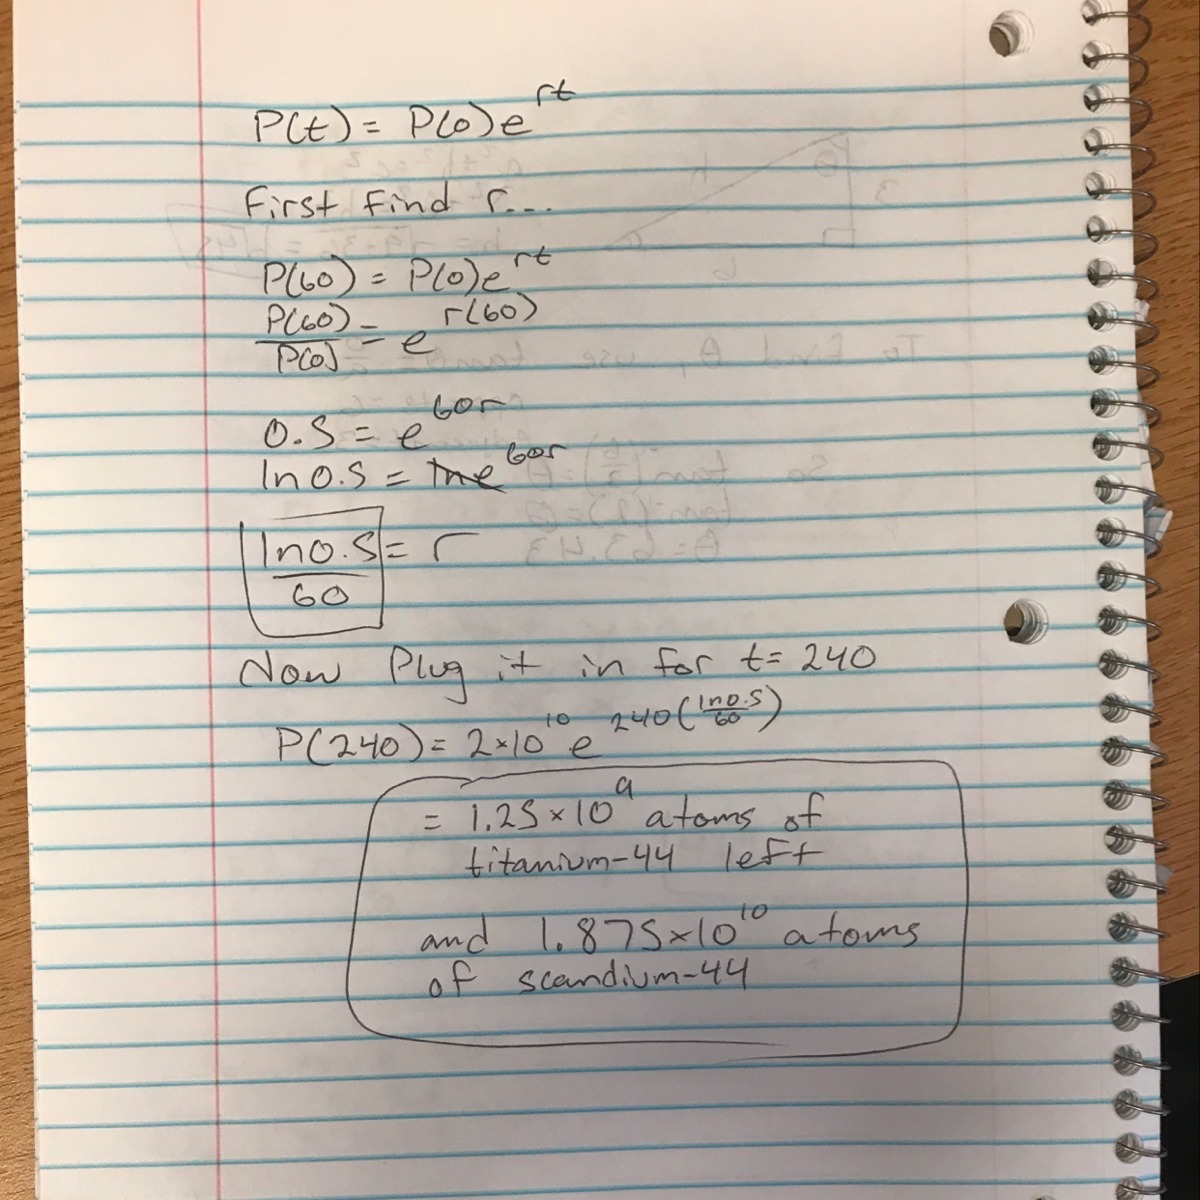 P(t) = P(0)e^rt
First find r...
P(60) = P(0)e^rt
P(60)/P(0) = e^r(60)
0.5 = e^60r
ln0.5 = lne^60r
ln0.5/60 = r
Now Plug it in for t= 240
P(240) = 2×10^10 e^240(ln0.5/60)
= 1.25×10^9 atoms of
titanium-44 left
and 1.875×10^10 atoms
of scandium-44